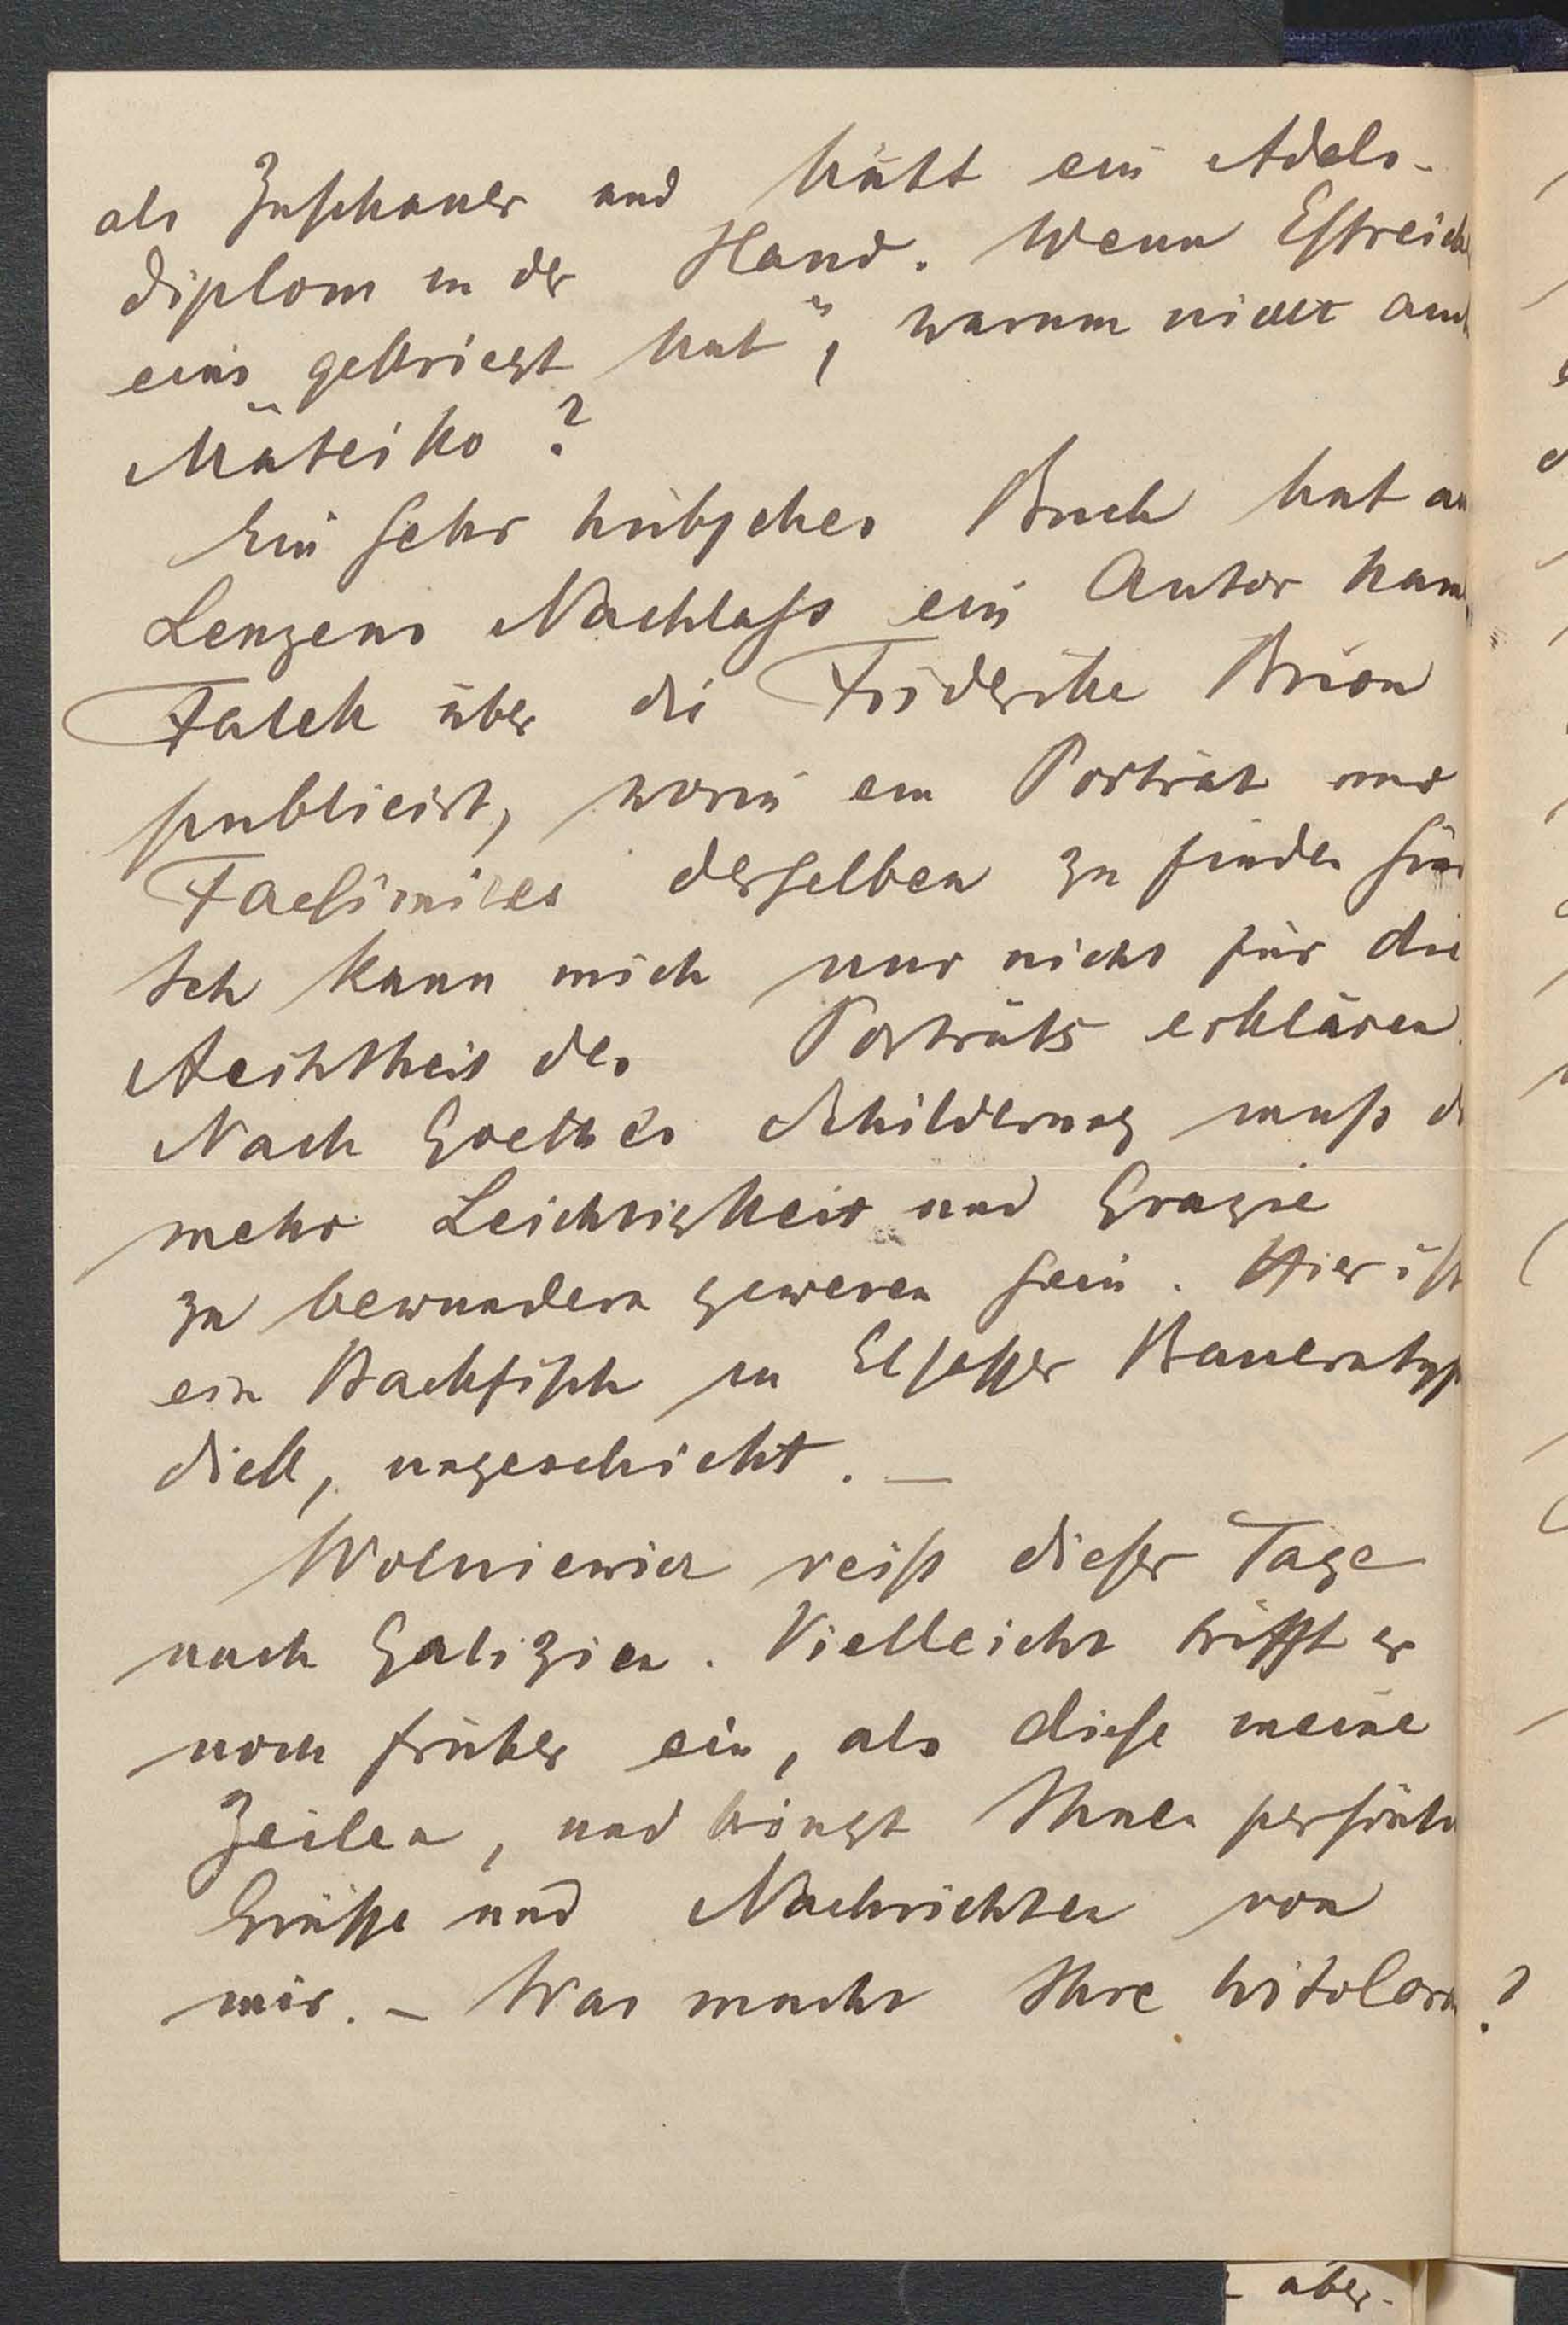 als Zuschauer und hält ein Adels-
diplom in der Hand. Wenn Estreich
eins „gekriegt hat“, warum nicht auch
Mateiko?
Ein sehr hübsches Buch hat aus
Lenzens Nachlaß ein Autor Namens
Falck über die Friderike Brion
publicirt, worin ein Porträt und
Facsimiles derselben zu finden sind
Ich kann mich nur nicht für die
Aechtheit des Porträts erklären.
Nach Goethes Schilderung muß da
mehr Leichtigkeit und Grazie
zu bewundern gewesen sein. Hier ist
ein Backfisch in Elsasser Bauerntyp
dick, ungeschickt. —
Wolniewicz reist dieser Tage
nach Galizien. Vielleicht trifft er
noch früher ein, als diese meine
Zeilen, und bringt Ihnen persönl
Grüße und Nachrichten von
mir. – Was macht Ihre
aber.